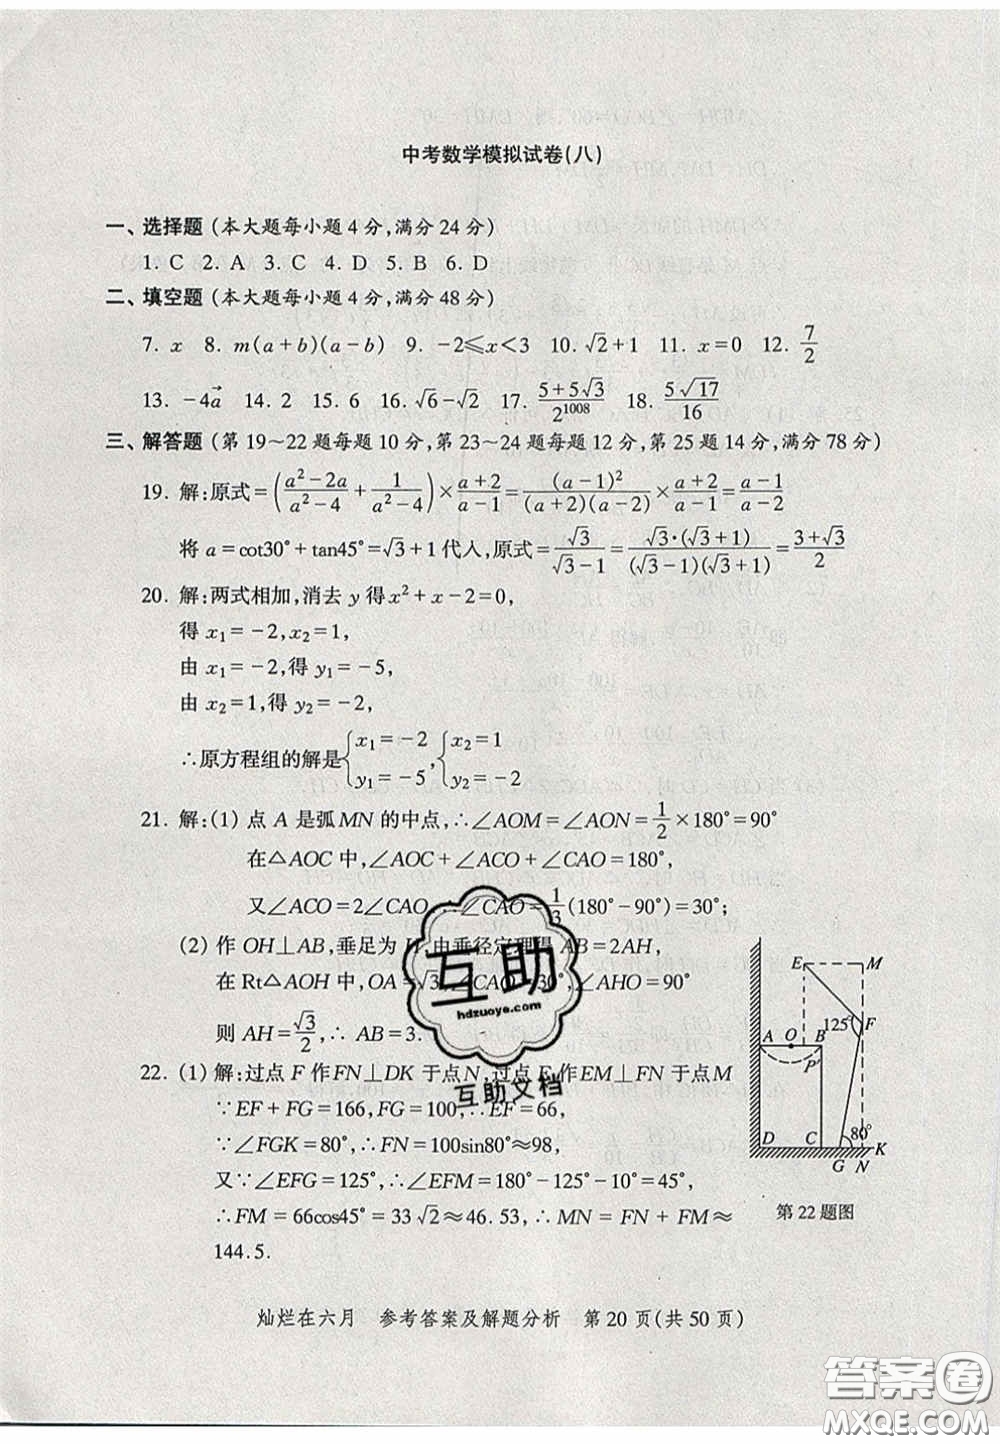 中考数学模拟试卷(八)
一、选择题 (本大题每小题4分,满分24分)
1. C 2. A 3. C 4. D 5. B 6. D
二、填空题 (本大题每小题4分,满分48分)
7. x 8. m(a+b)(a-b) 9. -2≤x<3 10. √2+1 11. x=0 12. 7/2
13. -4a⃗ 14. 2 15. 6 16. √6-√2 17. (5+5√3)/2^1008 18. 5√17/16
三、解答题 (第19~22题每题10分,第23~24题每题12分,第25题14分,满分78分)
19. 解:原式=((a²-2a)/(a²-4)+1/(a²-4))×(a+2)/(a-1)=(a-1)²/((a+2)(a-2))×(a+2)/(a-1)=(a-1)/(a-2)
将a=cot30°+tan45°=√3+1代入,原式=√3/(√3-1)=√3·(√3+1)/((√3-1)(√3+1))=(3+√3)/2
20. 解:两式相加,消去y得x²+x-2=0,
得x₁=-2,x₂=1,
由x₁=-2,得y₁=-5,
由x₂=1,得y₂=-2,
∴原方程组的解是{x₁=-2 y₁=-5,{x₂=1 y₂=-2
21. 解:(1) 点A是弧MN的中点,∴∠AOM=∠AON=1/2×180°=90°
在△AOC中,∠AOC+∠ACO+∠CAO=180°,
又∠ACO=2∠CAO,∴∠CAO=1/3(180°-90°)=30°;
(2) 作OH⊥AB,垂足为H,由垂径定理得AB=2AH,
在Rt△AOH中,OA=√3,∠CAO=30°,∠AHO=90°
则AH=√3/2,∴AB=3.
22. (1)解:过点F作FN⊥DK于点N,过点E作EM⊥FN于点M
∵EF+FG=166,FG=100,∴EF=66,
∵∠FGK=80°,∴FN=100sin80°≈98,
又∵∠EFG=125°,∴∠EFM=180°-125°-10°=45°,
∴FM=66cos45°=33√2≈46.53,∴MN=FN+FM≈
144.5.
E M
125° F
A O B
P
80°
D C G N K
第22题图
互助
hdzuoye.com
互助文档
灿烂在六月 参考答案及解题分析 第20页(共50页)
答案圈
MXQE.COM